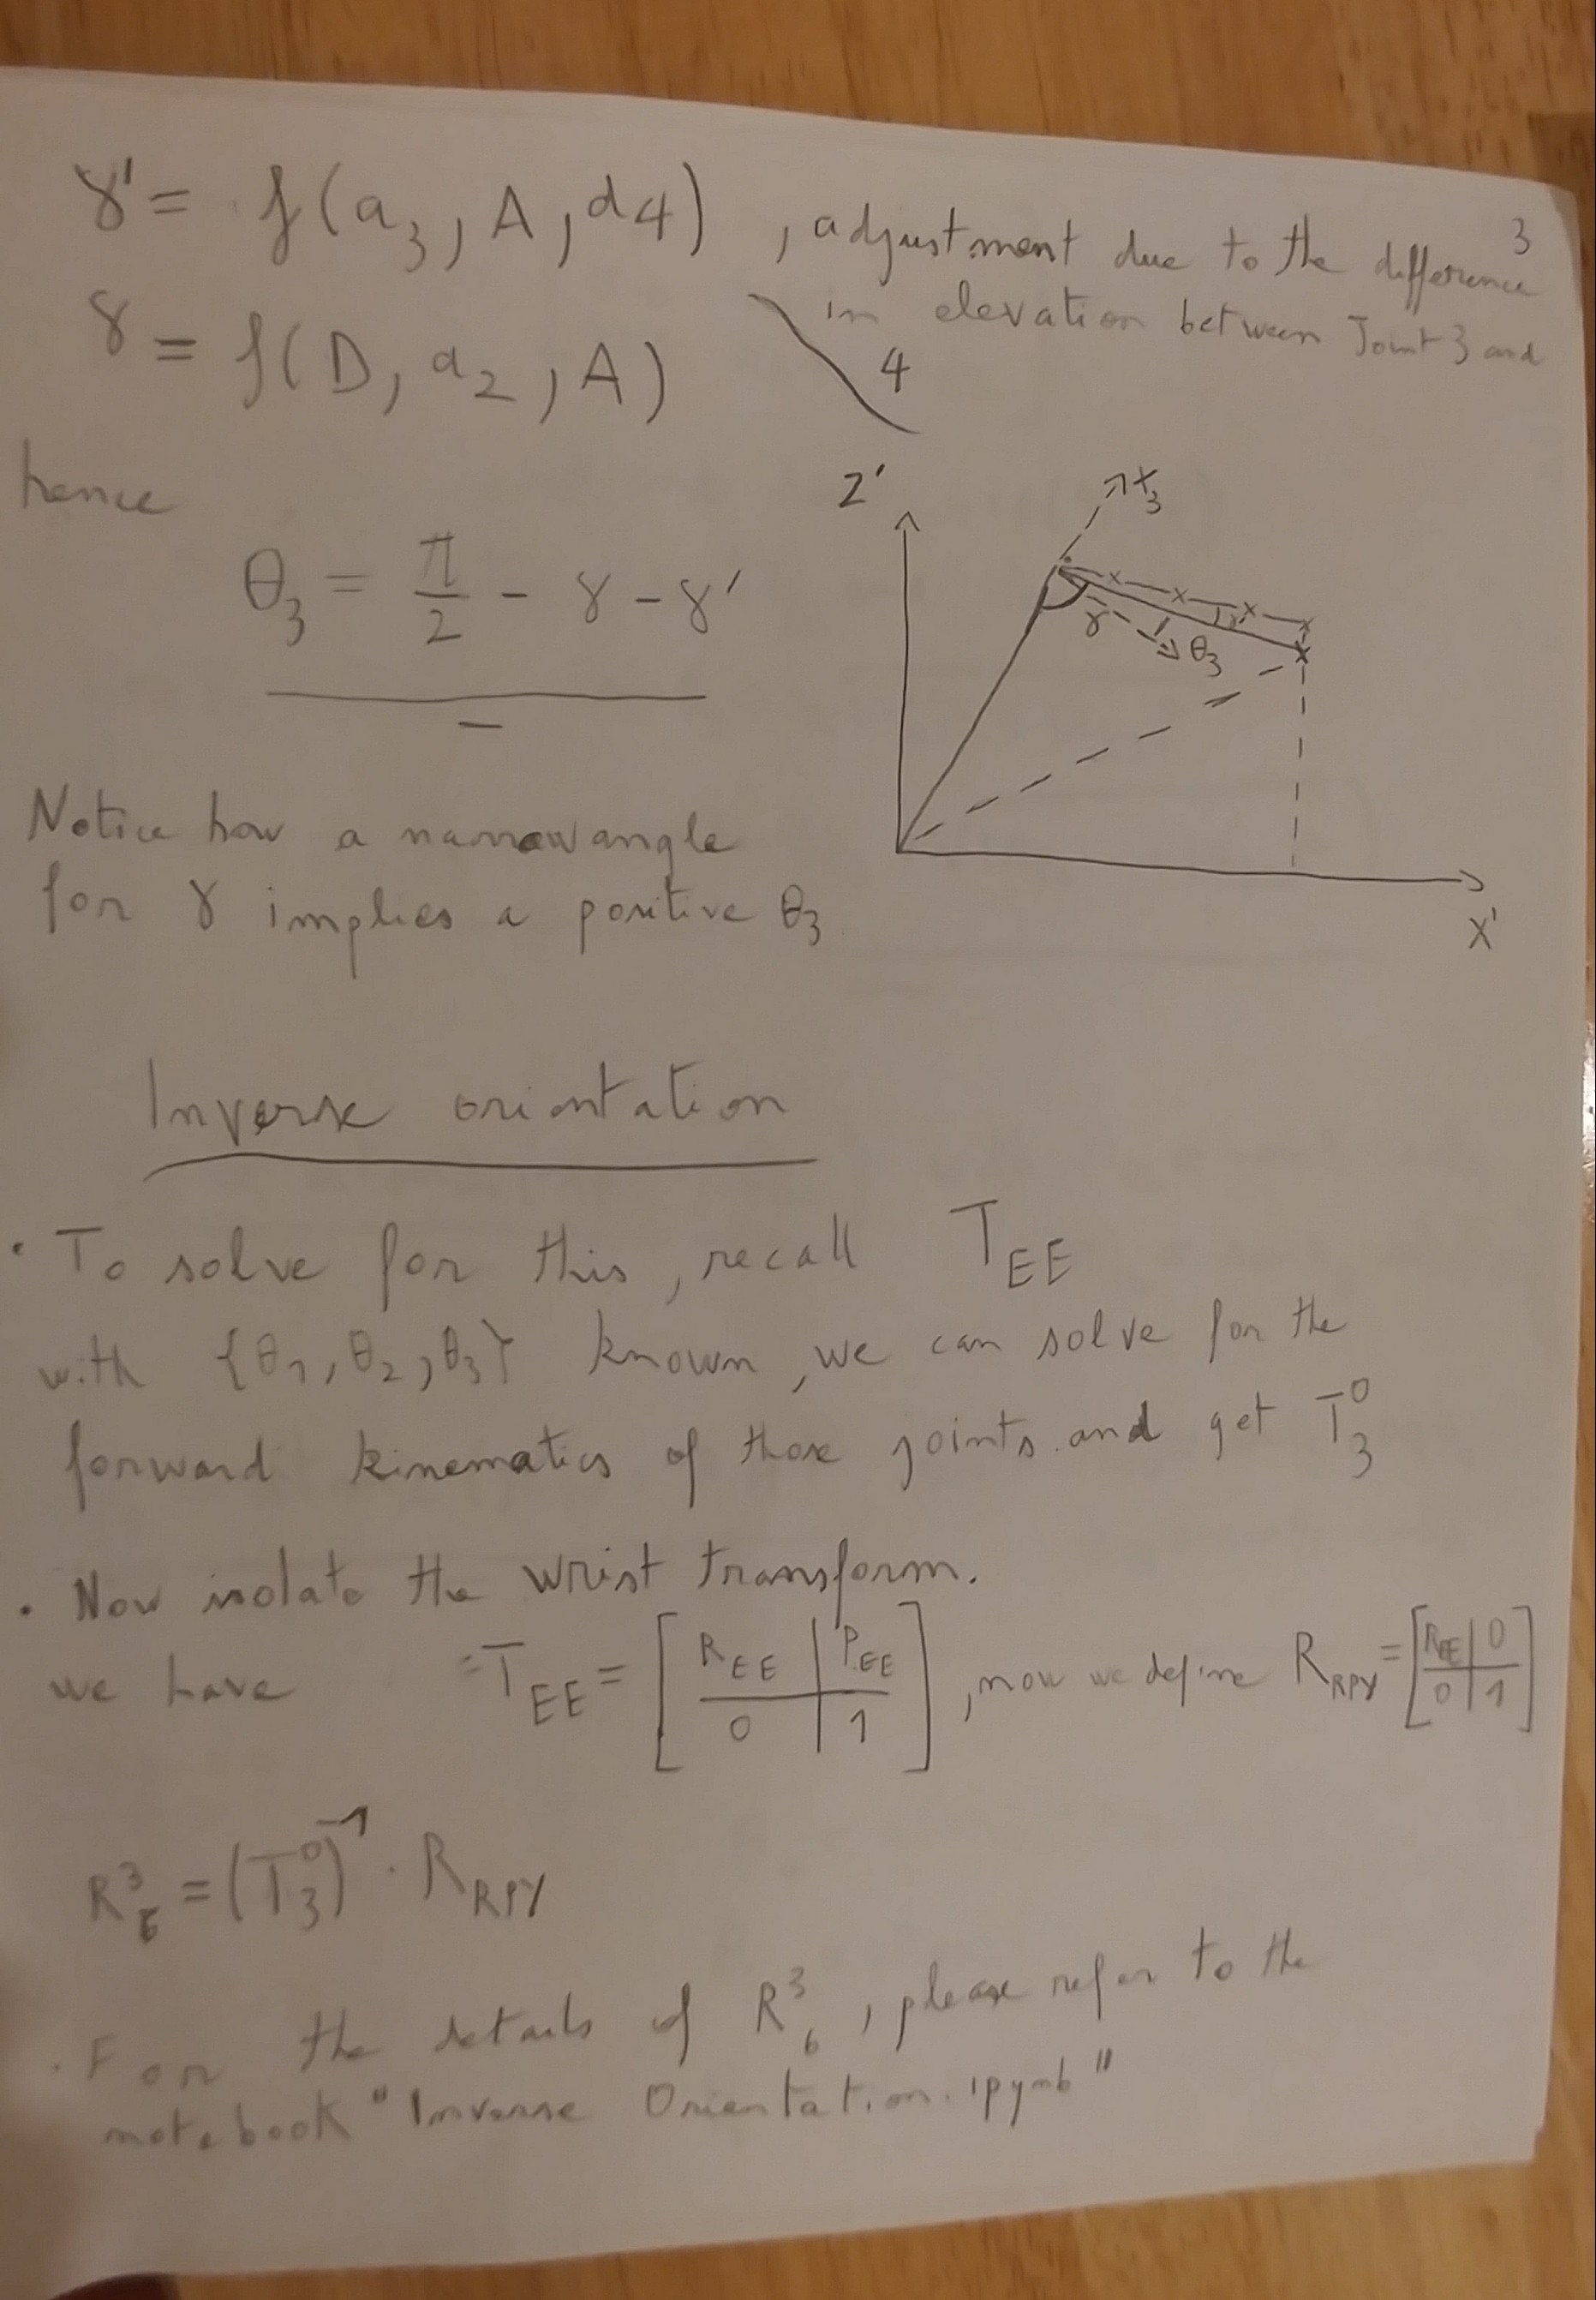 3
γ' = f(a₃, A, d4) , adjustment due to the difference
in elevation between Joint 3 and
4
γ = f(D, a₂, A)
hence
θ₃ = π/2 - γ - γ'
Z'
X₃
γ
γ'
θ₃
X'
Notice how a narrow angle
for γ implies a positive θ₃
Inverse orientation
• To solve for this, recall T_EE
with {θ₁, θ₂, θ₃} known, we can solve for the
forward kinematics of those joints and get T⁰₃
• Now isolate the wrist transform.
we have T_EE = [R_EE | P_EE; 0 | 1], now we define R_RPY = [R_EE | 0; 0 | 1]
R³₆ = (T⁰₃)⁻¹ · R_RPY
• For the details of R³₆, please refer to the
notebook "Inverse Orientation.ipynb"